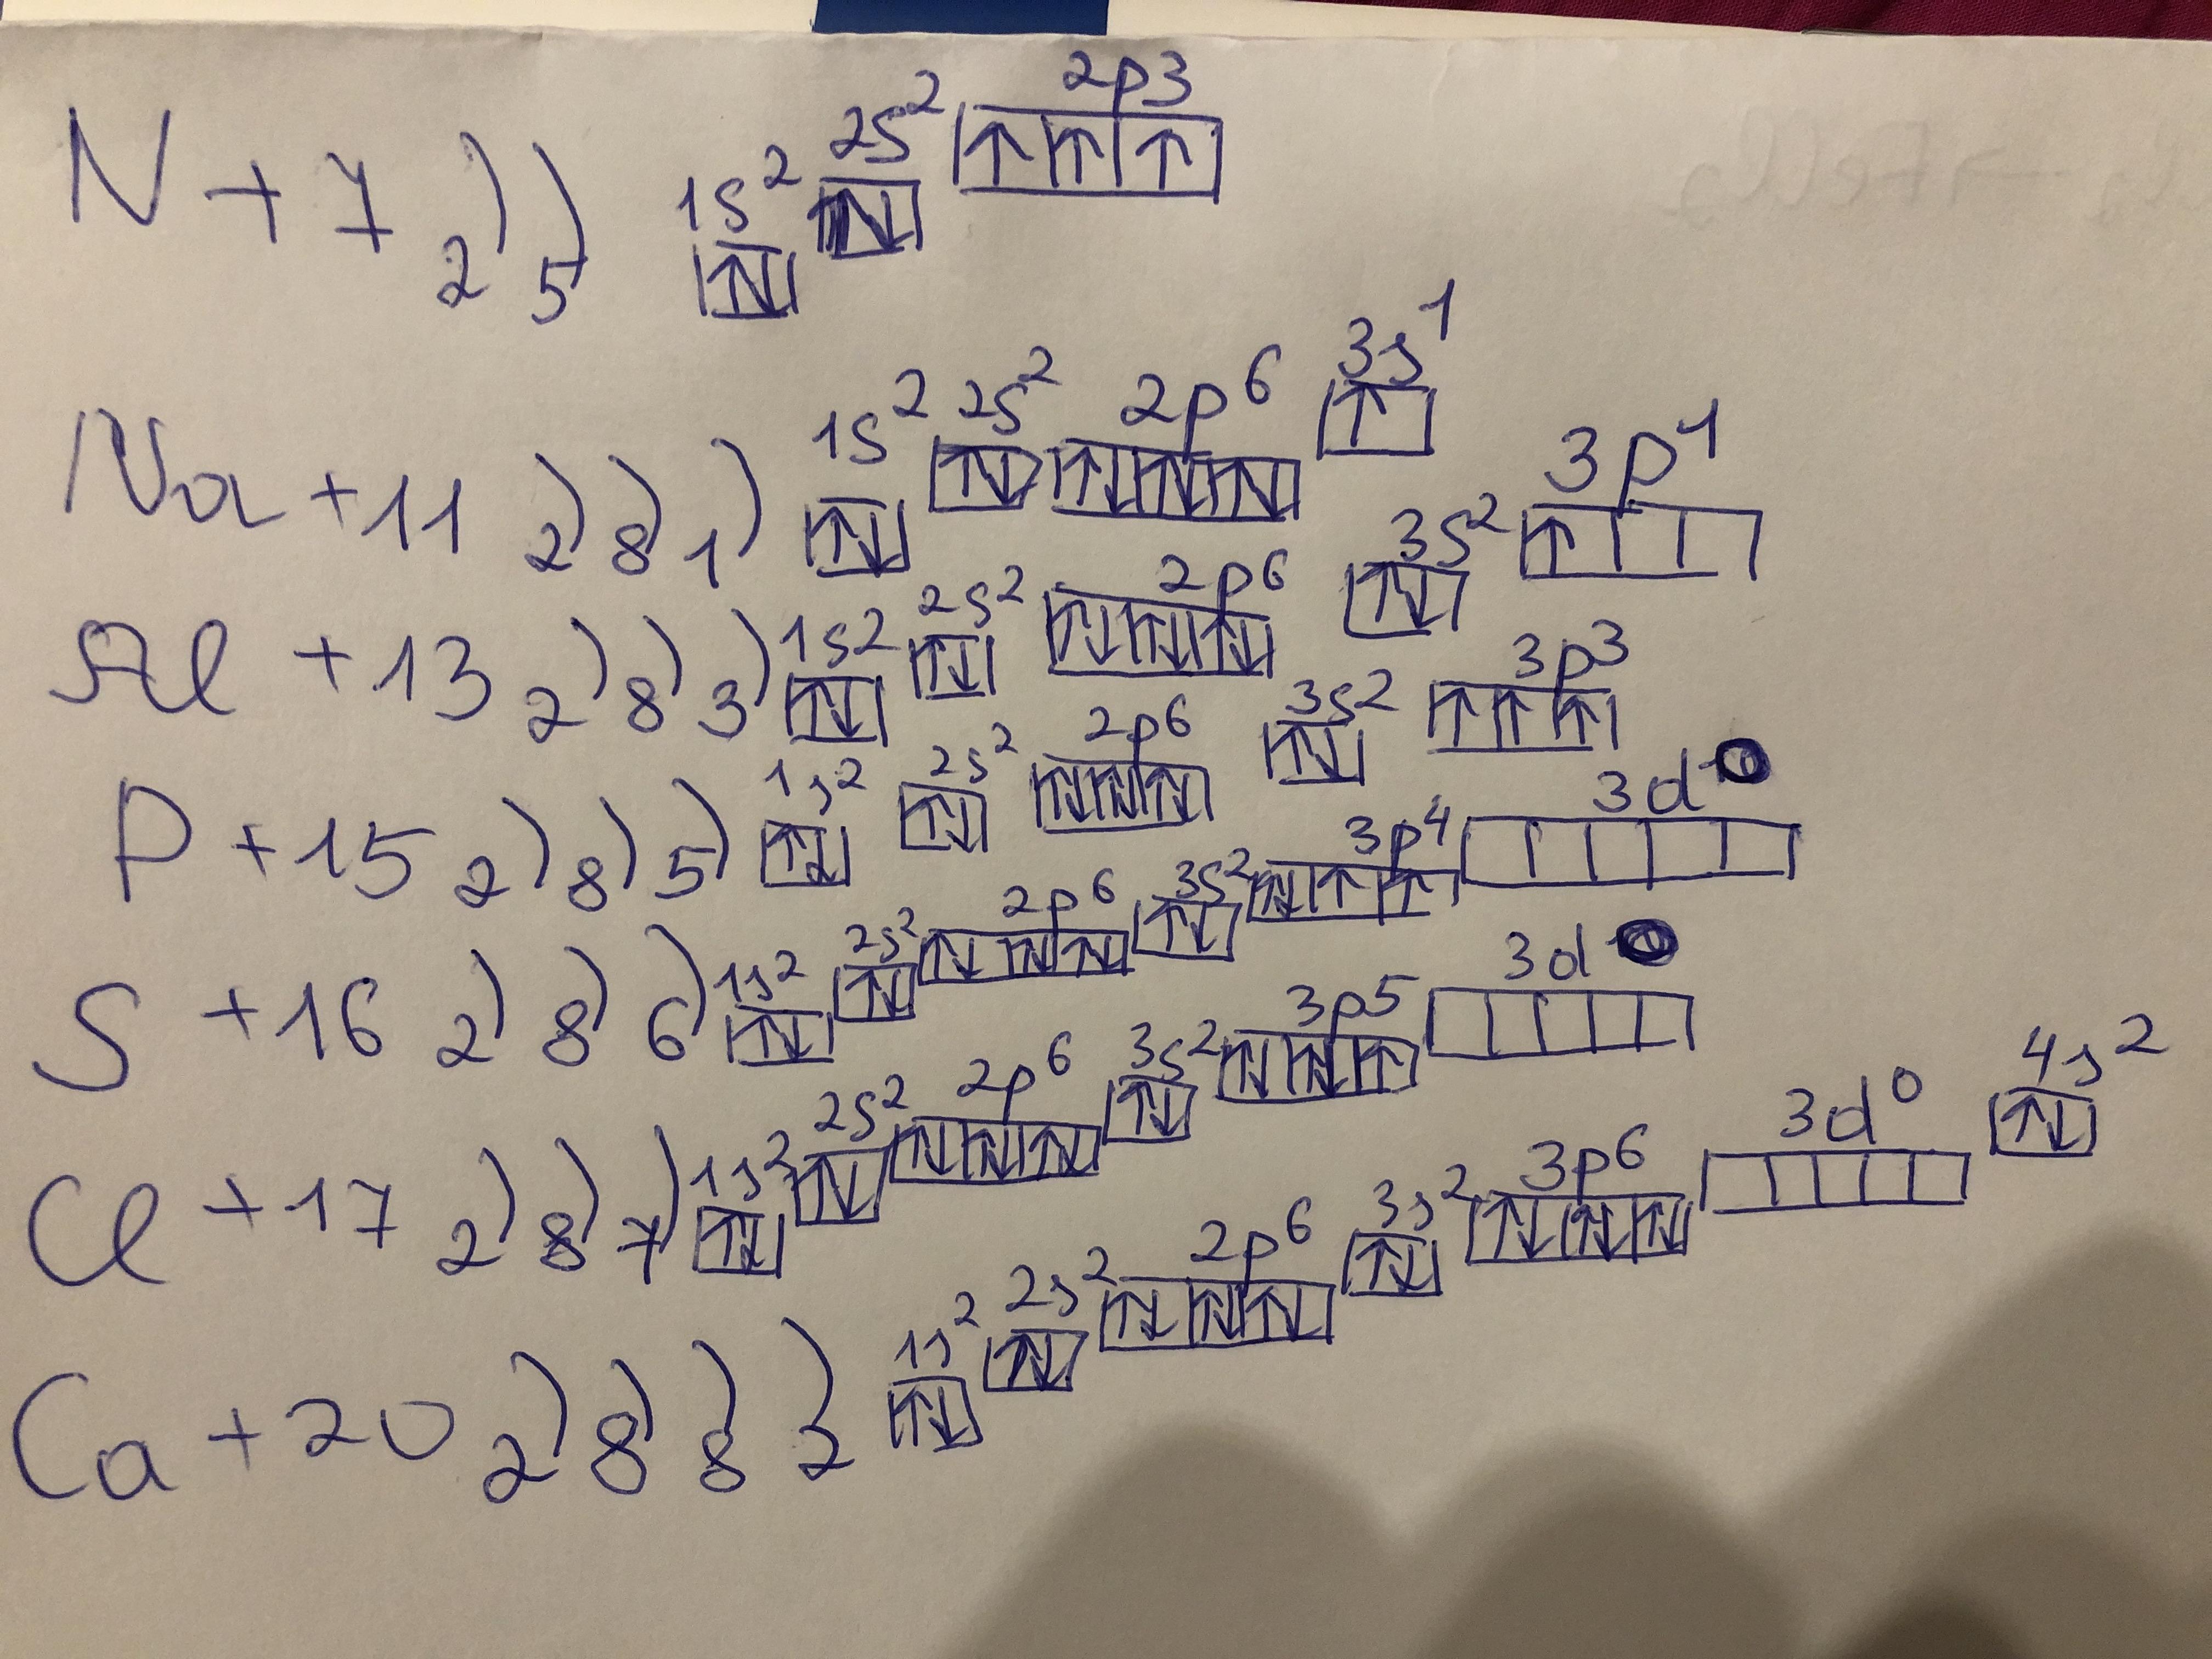 N +7 2) 5) 1s² 2s² 2p3
Na +11 2) 8) 1) 1s² 2s² 2p⁶ 3s¹
Al +13 2) 8) 3) 1s² 2s² 2p⁶ 3s² 3p¹
P +15 2) 8) 5) 1s² 2s² 2p⁶ 3s² 3p³
S +16 2) 8) 6) 1s² 2s² 2p⁶ 3s² 3p⁴ 3d
Cl +17 2) 8) 7) 1s² 2s² 2p⁶ 3s² 3p5 3d
Ca +20 2) 8) 8) 2) 1s² 2s² 2p⁶ 3s² 3p⁶ 3d⁰ 4s²